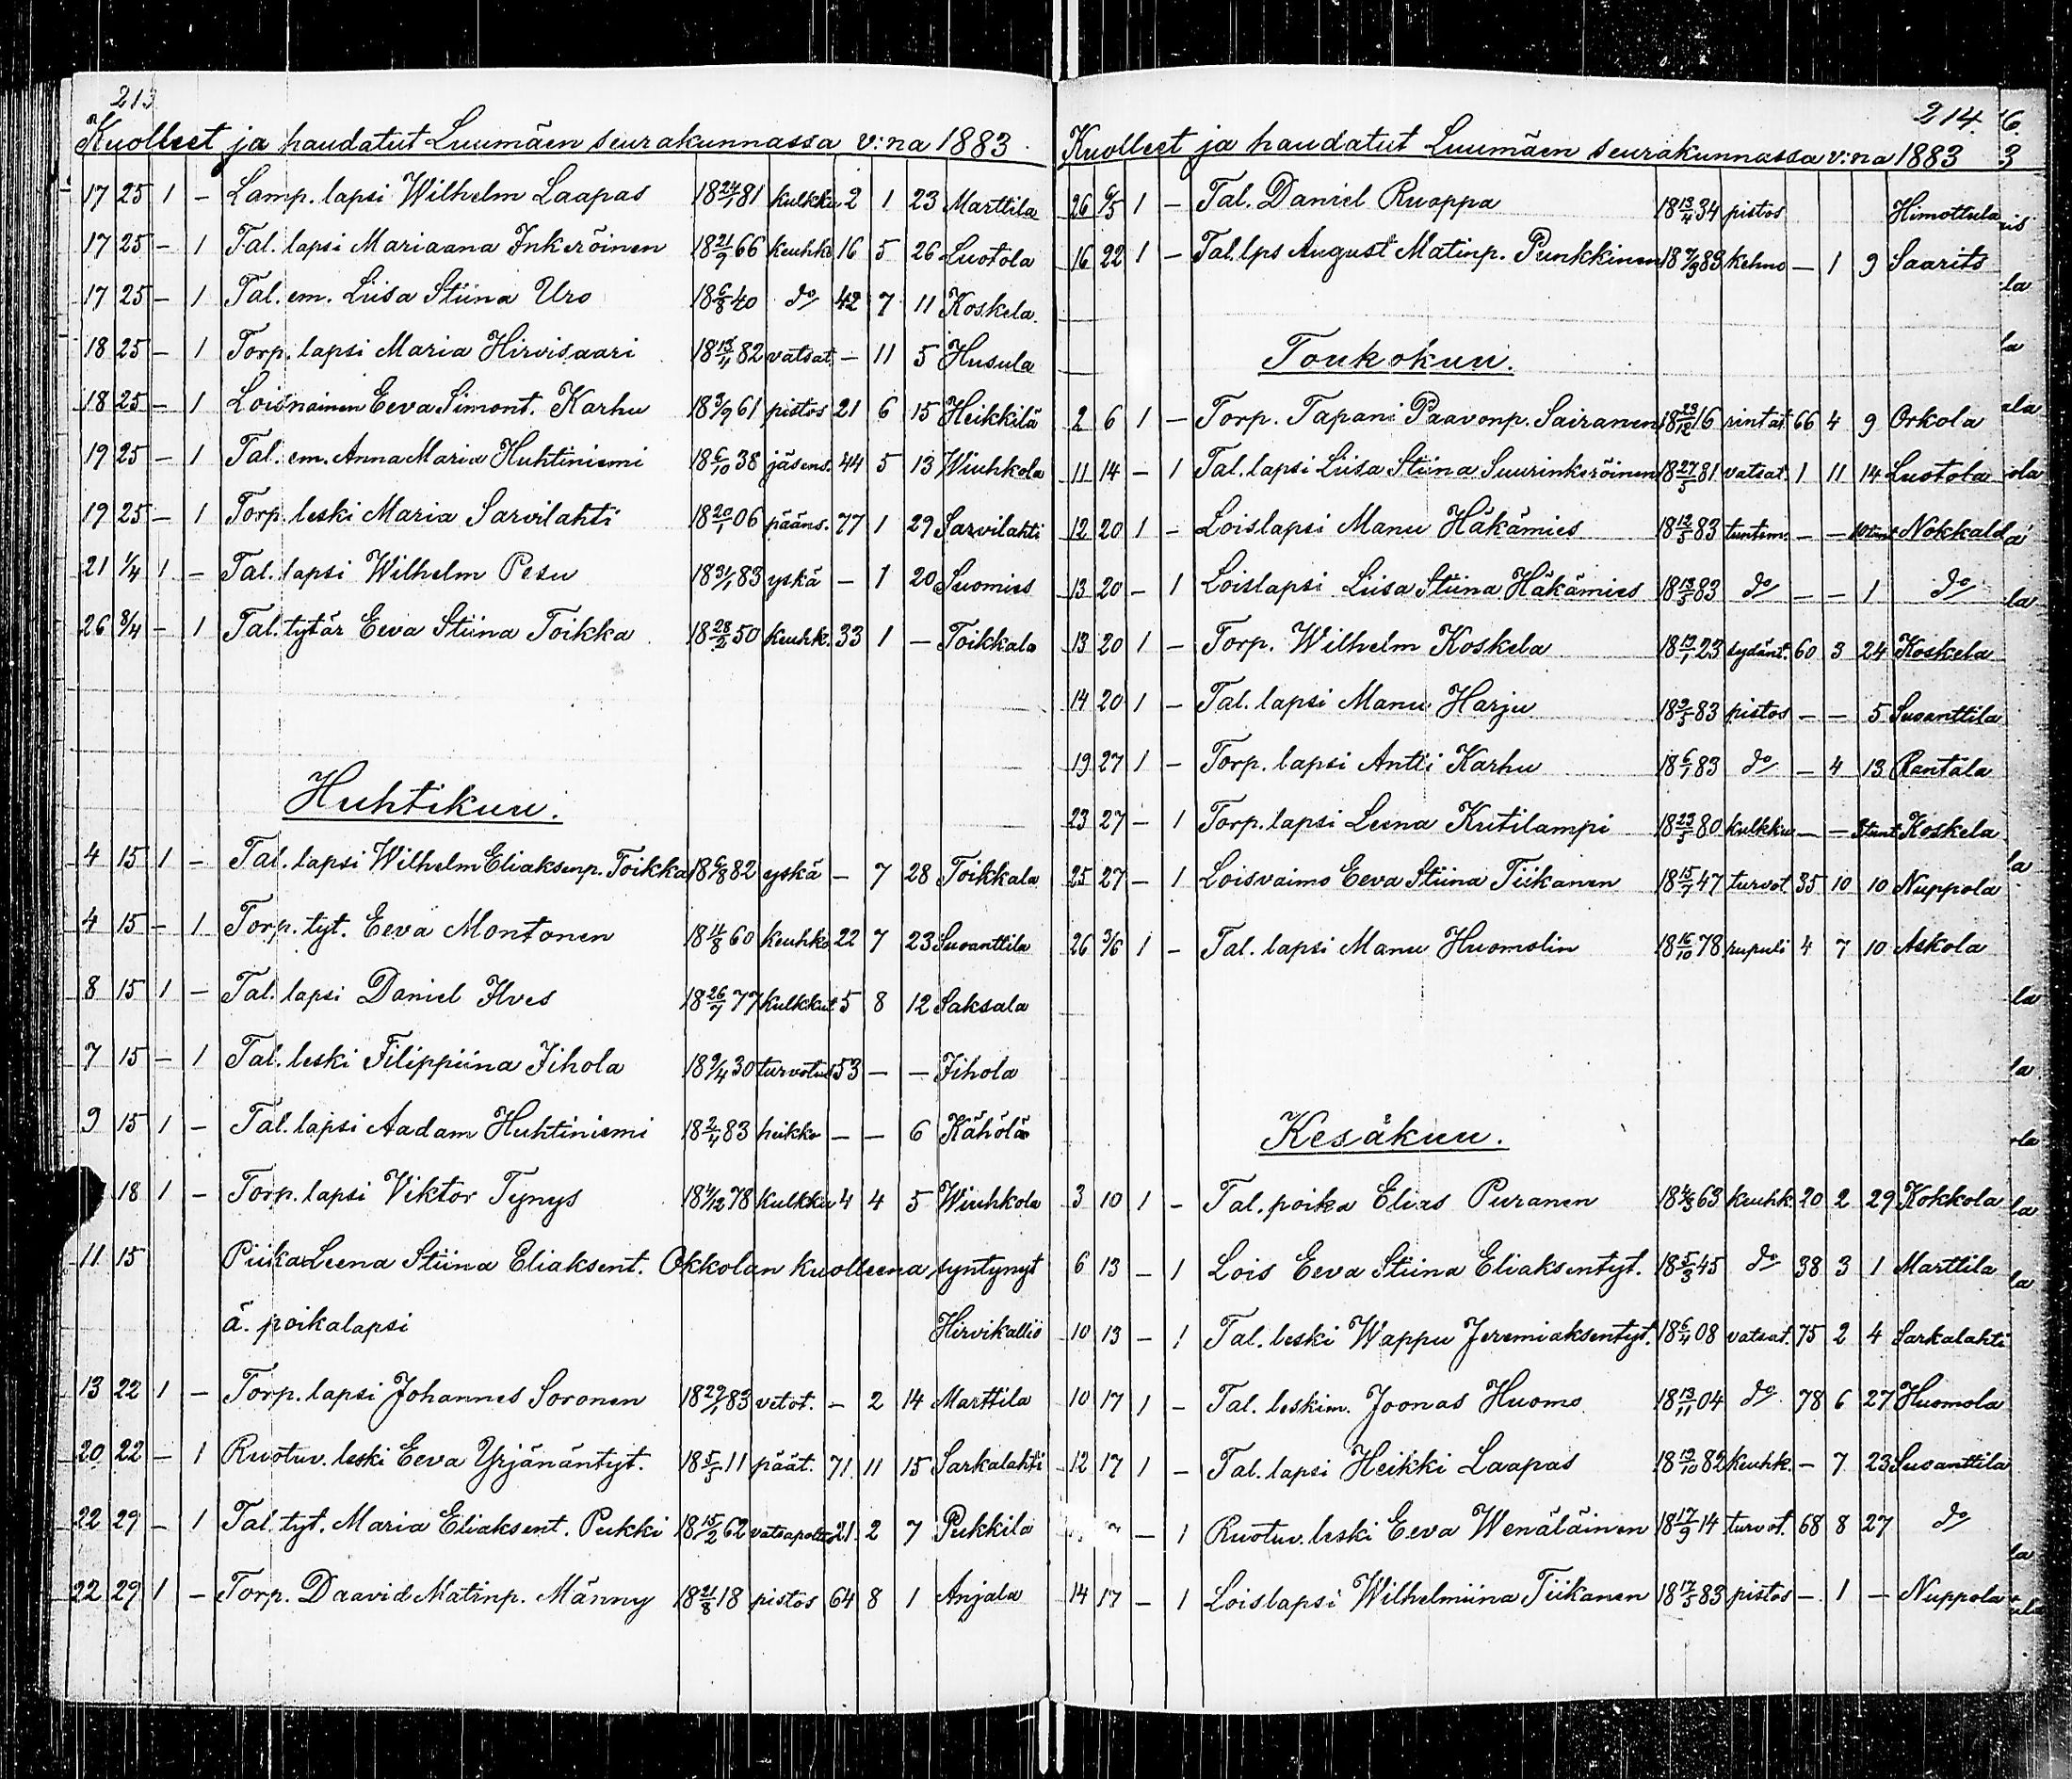 213
Kuolleet ja haudatut Luumäen seurakunnassa v:na 1883.
17 25 1 – Lamp. lapsi Wilhelm Laapas 18 24/1 81 kulkku 2 1 23 Marttila
17 25 – 1 Tal. lapsi Mariaana Inkeröinen 18 21/9 66 keuhko 16 5 26 Luotola
17 25 – 1 Tal. em. Liisa Stiina Uro 18 6/8 40 do 42 7 11 Koskela
18 25 – 1 Torp. lapsi Maria Hirvisaari 18 13/4 82 vatsat. – 11 5 Husula
18 25 – 1 Loisnainen Eeva Simont. Karhu 18 3/9 61 pistos 21 6 15 Heikkilä
19 25 – 1 Tal. em. Anna Maria Huhtiniemi 18 6/10 38 jäsens. 44 5 13 Wiuhkola
19 25 – 1 Torp. leski Maria Sarvilahti 18 20/1 06 pääns. 77 1 29 Sarvilahti
21 1/4 1 – Tal. lapsi Wilhelm Pesu 18 31/1 83 yskä – 1 20 Suomies
26 8/4 – 1 Tal. tytär Eeva Stiina Toikka 18 28/2 50 keuhk. 33 1 – Toikkala
Huhtikuu.
4 15 1 – Tal. lapsi Wilhelm Eliaksenp. Toikka 18 6/8 82 yskä – 7 28 Toikkala
4 15 – 1 Torp. tyt. Eeva Montonen 18 11/8 60 keuhko 22 7 23 Suoanttila
8 15 1 – Tal. lapsi Daniel Ilves 18 26/7 77 kulkkut 5 8 12 Saksala
7 15 – 1 Tal. leski Filippiina Iihola 18 9/4 30 turvotus 53 – – Iihola
9 15 1 – Tal. lapsi Aadam Huhtiniemi 18 2/4 83 heikko – – 6 Kähölä
18 1 – Torp. lapsi Viktor Tynys 18 4/12 78 kulkku 4 4 5 Wiuhkola
11 15 Piika Leena Stiina Eliaksent. Okkolan kuolleena syntynyt
ä. poikalapsi Hirvikallio
13 22 1 – Torp. lapsi Johannes Soronen 18 29/1 83 vetot. – 2 14 Marttila
20 22 – 1 Ruotuv. leski Eeva Yrjänäntyt. 18 5/5 11 päät. 71 11 15 Sarkalahti
22 29 – 1 Tal. tyt. Maria Eliaksent. Pukki 18 15/2 62 vatsapolte 21 2 7 Pukkila
22 29 1 – Torp. Daavid Matinp. Männy 18 21/8 18 pistos 64 8 1 Anjala
214.
Kuolleet ja haudatut Luumäen seurakunnassa v:na 1883
26 6/5 1 – Tal. Daniel Ruoppa 18 13/4 34 pistos Himottula
16 22 1 – Tal. lps August Matinp. Punkkinen 18 7/3 83 kehno – 1 9 Saarits
Toukokuu.
2 6 1 – Torp. Tapani Paavonp. Sairanen 18 23/12 16 rintat. 66 4 9 Orkola
11 14 – 1 Tal. lapsi Liisa Stiina Suurinkeröinen 18 27/5 81 vatsat. 1 11 14 Luotola
12 20 1 – Loislapsi Manu Häkämies 18 12/5 83 tuntem. – – 10 tunt Nokkala
13 20 – 1 Loislapsi Liisa Stiina Häkämies 18 12/5 83 do – – 1 do
13 20 1 – Torp. Wilhelm Koskela 18 19/1 23 sydänt. 60 3 24 Koskela
14 20 1 – Tal. lapsi Manu Harju 18 9/5 83 pistos – – 5 Suoanttila
19 27 1 – Torp. lapsi Antti Karhu 18 6/1 83 do – 4 13 Rantala
23 27 – 1 Torp. lapsi Leena Kutilampi 18 23/5 80 kulkku – – 3 tunt Koskela
25 27 – 1 Loisvaimo Eeva Stiina Tiikanen 18 15/7 47 turvot 35 10 10 Nuppola
26 3/6 1 – Tal. lapsi Manu Huomolin 18 16/10 78 rupuli 4 7 10 Askola
Kesäkuu.
3 10 1 – Tal. poika Elias Puranen 18 4/3 63 keuhk. 20 2 29 Kokkola
6 13 – 1 Lois Eeva Stiina Eliaksentyt. 18 5/3 45 do 38 3 1 Marttila
10 13 – 1 Tal. leski Wappu Jeremiaksentyt. 18 6/4 08 vatsat. 75 2 4 Sarkalahti
10 17 1 – Tal. leskim. Joonas Huomo 18 13/11 04 do 78 6 27 Huomola
12 17 1 – Tal. lapsi Heikki Laapas 18 19/10 82 keuhk. – 7 23 Suoanttila
– 1 Ruotuv. leski Eeva Wenäläinen 18 17/9 14 turvot. 68 8 27 do
14 17 – 1 Loislapsi Wilhelmiina Tiikanen 18 17/5 83 pistos – 1 – Nuppola